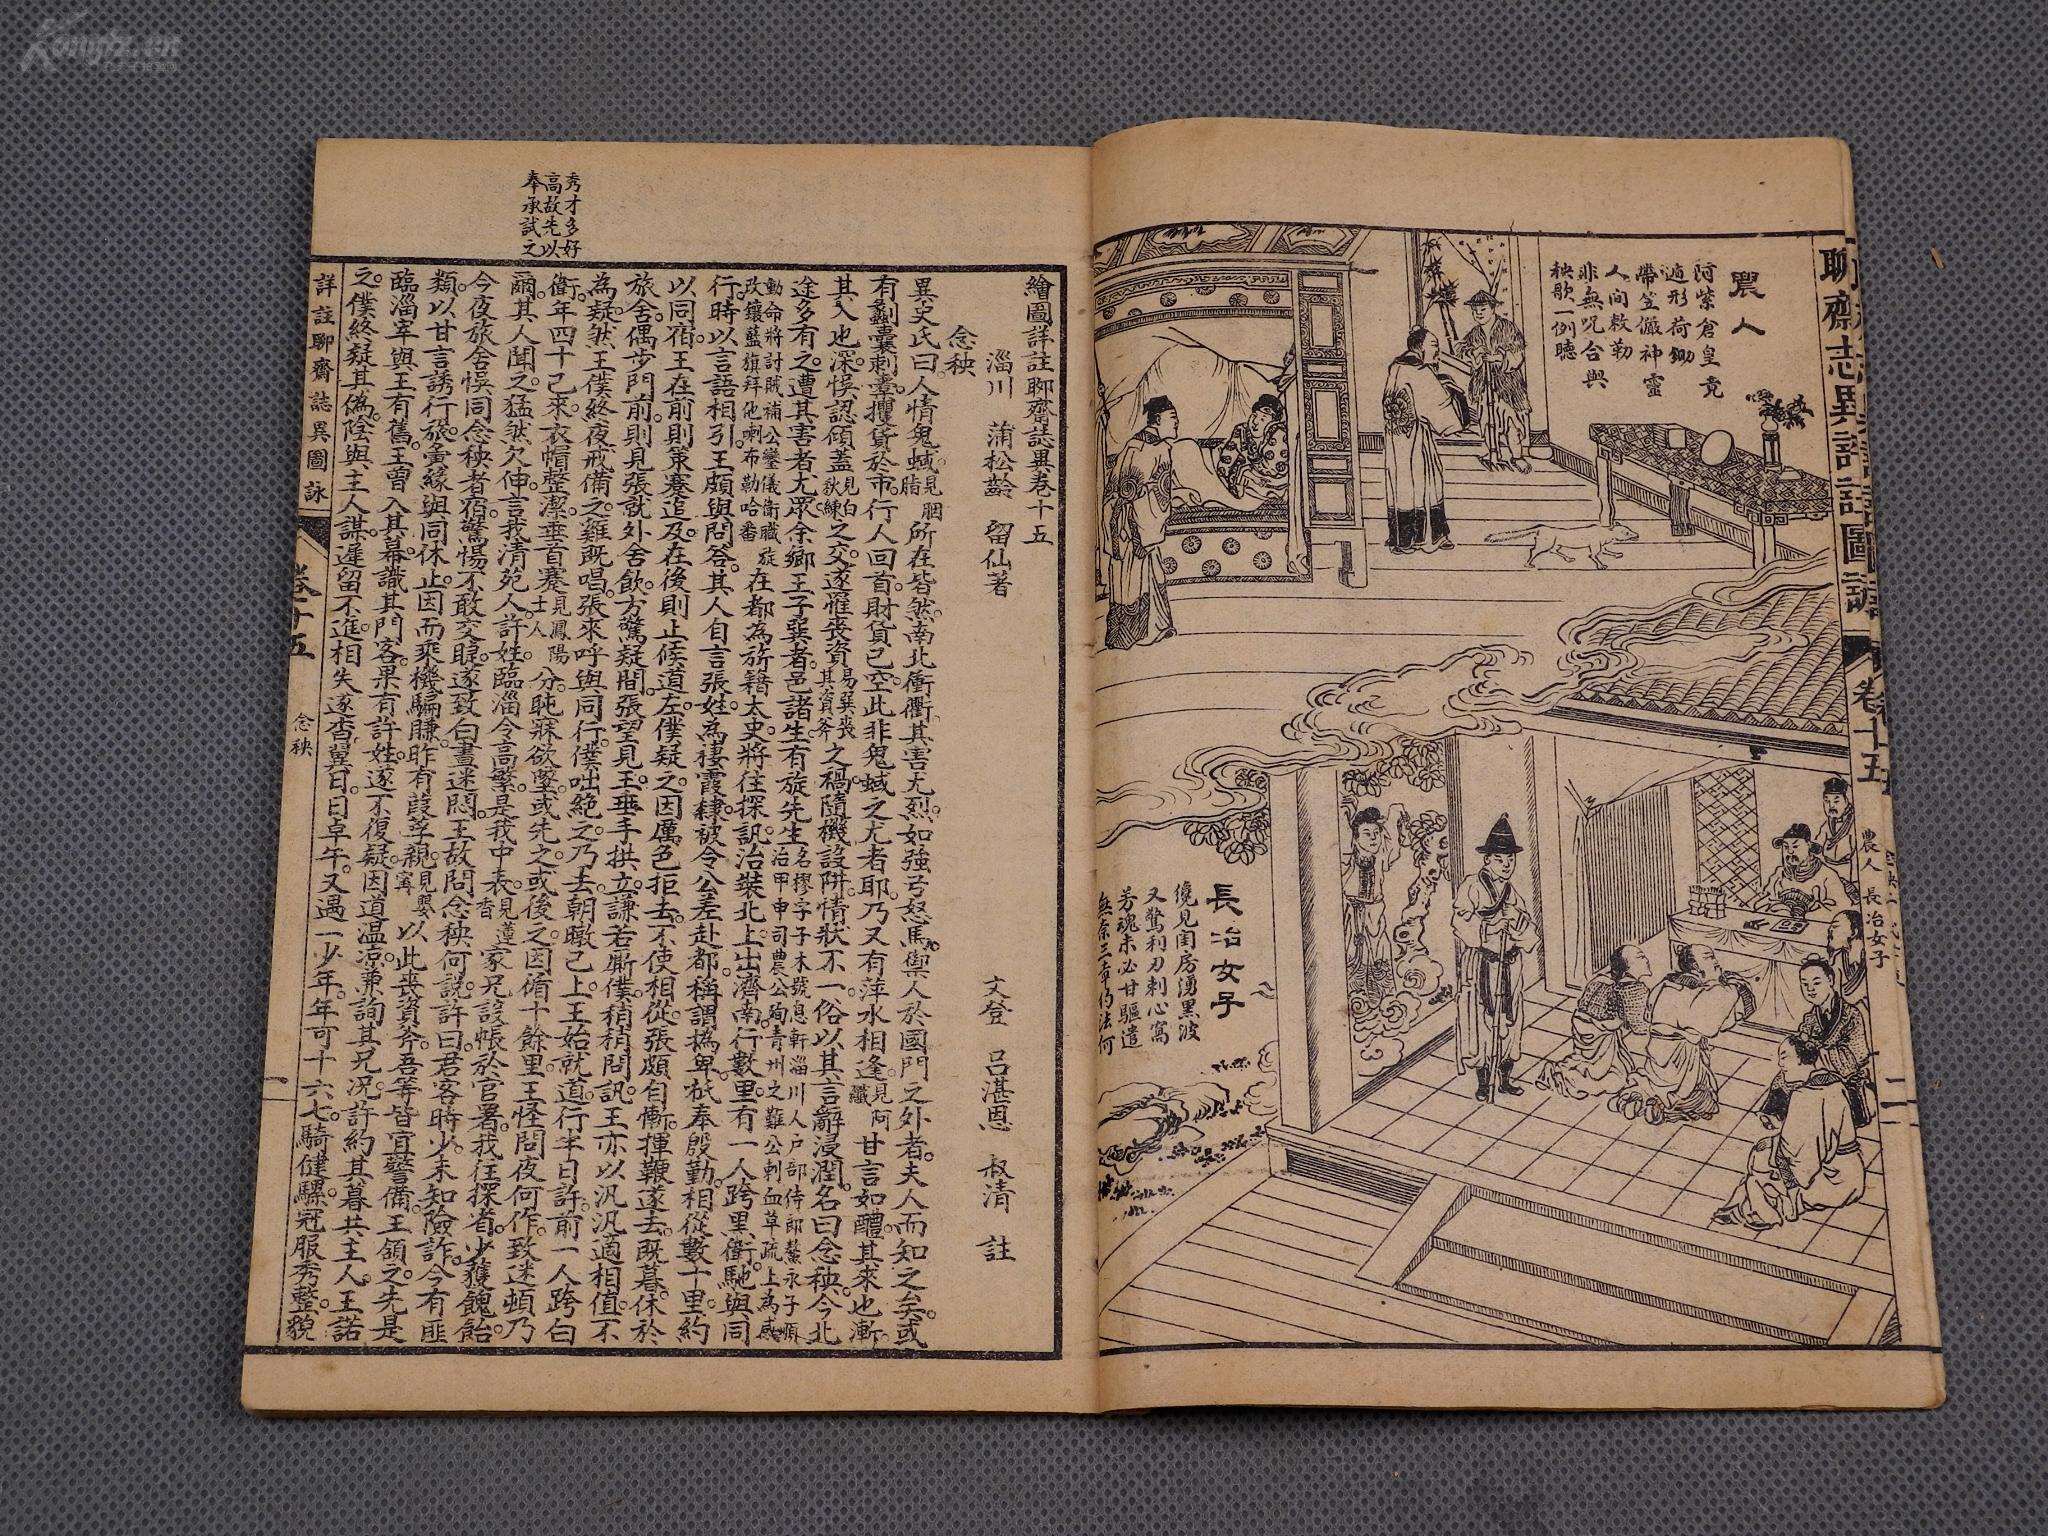 聊齋志異詳註圖詠 卷十五 農人 長冶女子 二
農人
阿紫倉皇竟
遁形荷鋤
帶笠儼神靈
人間敕勒
非無咒合與
秧歌一例聽
長冶女子
傥見閨房湧黑波
又驚利刃刺心窩
芳魂未必甘驅遣
繪圖詳註聊齋誌異卷十五
淄川 蒲松齡 留仙著 文登 呂湛恩 叔清 註
念秧
異史氏曰。人情鬼蜮。見胭脂所在皆然。南北衝衢。其害尤烈。如強弓怒馬。禦人於國門之外者。夫人而知之矣。或
有劙囊刺橐。攫貨於市。行人回首。財貨已空。此非鬼蜮之尤者耶。乃又有萍水相逢。見阿纖甘言如醴。其來也漸
其入也深。悞認傾蓋見白秋練之交。遂罹喪資易巽喪其資斧之禍。隨機設阱。情狀不一。俗以其言辭浸潤。名曰念秧。今北
途多有之。遭其害者尤眾。余鄉王子巽者。邑諸生。有旋先生名樛字子木號息軒淄川人戶部侍郎鰲永子順治甲申司農公殉青州之難公刺血草疏上為感
動命將討賊補公鑾儀衛職旋改鑲藍旗拜他喇布勒哈番在都為旂籍太史。將往探訊。治裝北上。出濟南。行數里。有一人跨黑衛。馳與同
行。時以言語相引。王頗與問答。其人自言張姓。為棲霞隸。被令公差赴都。稱謂撝卑。祇奉殷勤。相從數十里。約
以同宿。王在前則策蹇追及。在後則止候道左。僕疑之。因厲色拒去。不使相從。張頗自慚。揮鞭遂去。既暮休於
旅舍。偶步門前。則見張就外舍飲。方驚疑間。張望見王。垂手拱立。謙若廝僕。稍稍問訊。王亦以汎汎適相值。不
為疑。然王僕終夜戒備之。雞既唱。張來呼與同行。僕咄絕之。乃去。朝暾已上。王始就道。行半日許。前一人跨白
衛。年四十已來。衣帽整潔。垂首蹇見鳳陽士人分。盹寐欲墮。或先之。或後之。因循十餘里。王怪問夜何作。致迷頓乃
爾。其人聞之。猛然欠伸。言我清苑人。許姓。臨淄令高檠。是我中表。見蓮香家兄設帳於官署。我往探省。少獲餽飴。
今夜旅舍。悞同念秧者宿。驚惕不敢交睫。遂致白晝迷悶。王故問念秧何說。許曰。君客時少。未知險詐。今有匪
類。以甘言誘行旅。夤緣與同休止。因而乘機騙賺。昨有葭莩親。見嬰寧以此喪資斧。吾等皆宜警備。王頷之。先是
臨淄宰與王有舊。王曾入其幕。識其門客。果有許姓。遂不復疑。因道溫涼。兼詢其兄況。許約其暮共主人。王諾
之。僕終疑其偽。陰與主人謀。遲留不進。相失遂杳。翼日。日卓午。又遇一少年。年可十六七。騎健騾。冠服秀整。貌
秀才多好
高故先以
奉承試之
詳註聊齋誌異圖詠 卷十五 念秧 一